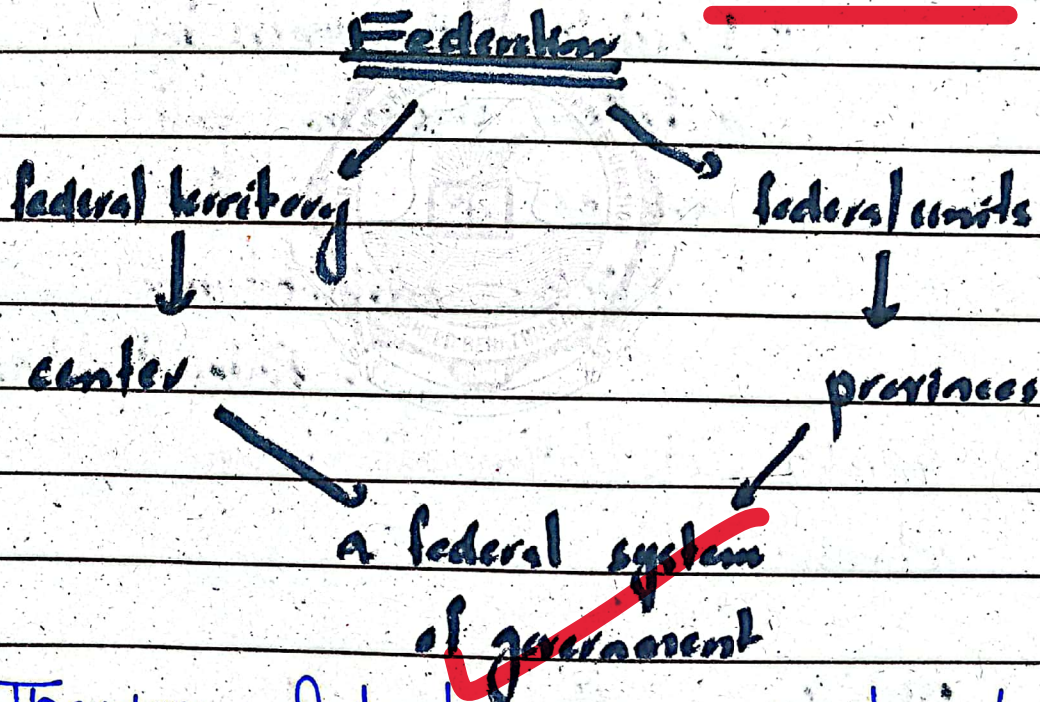 Federation
federal territory federal units
center provinces
a federal system
of government